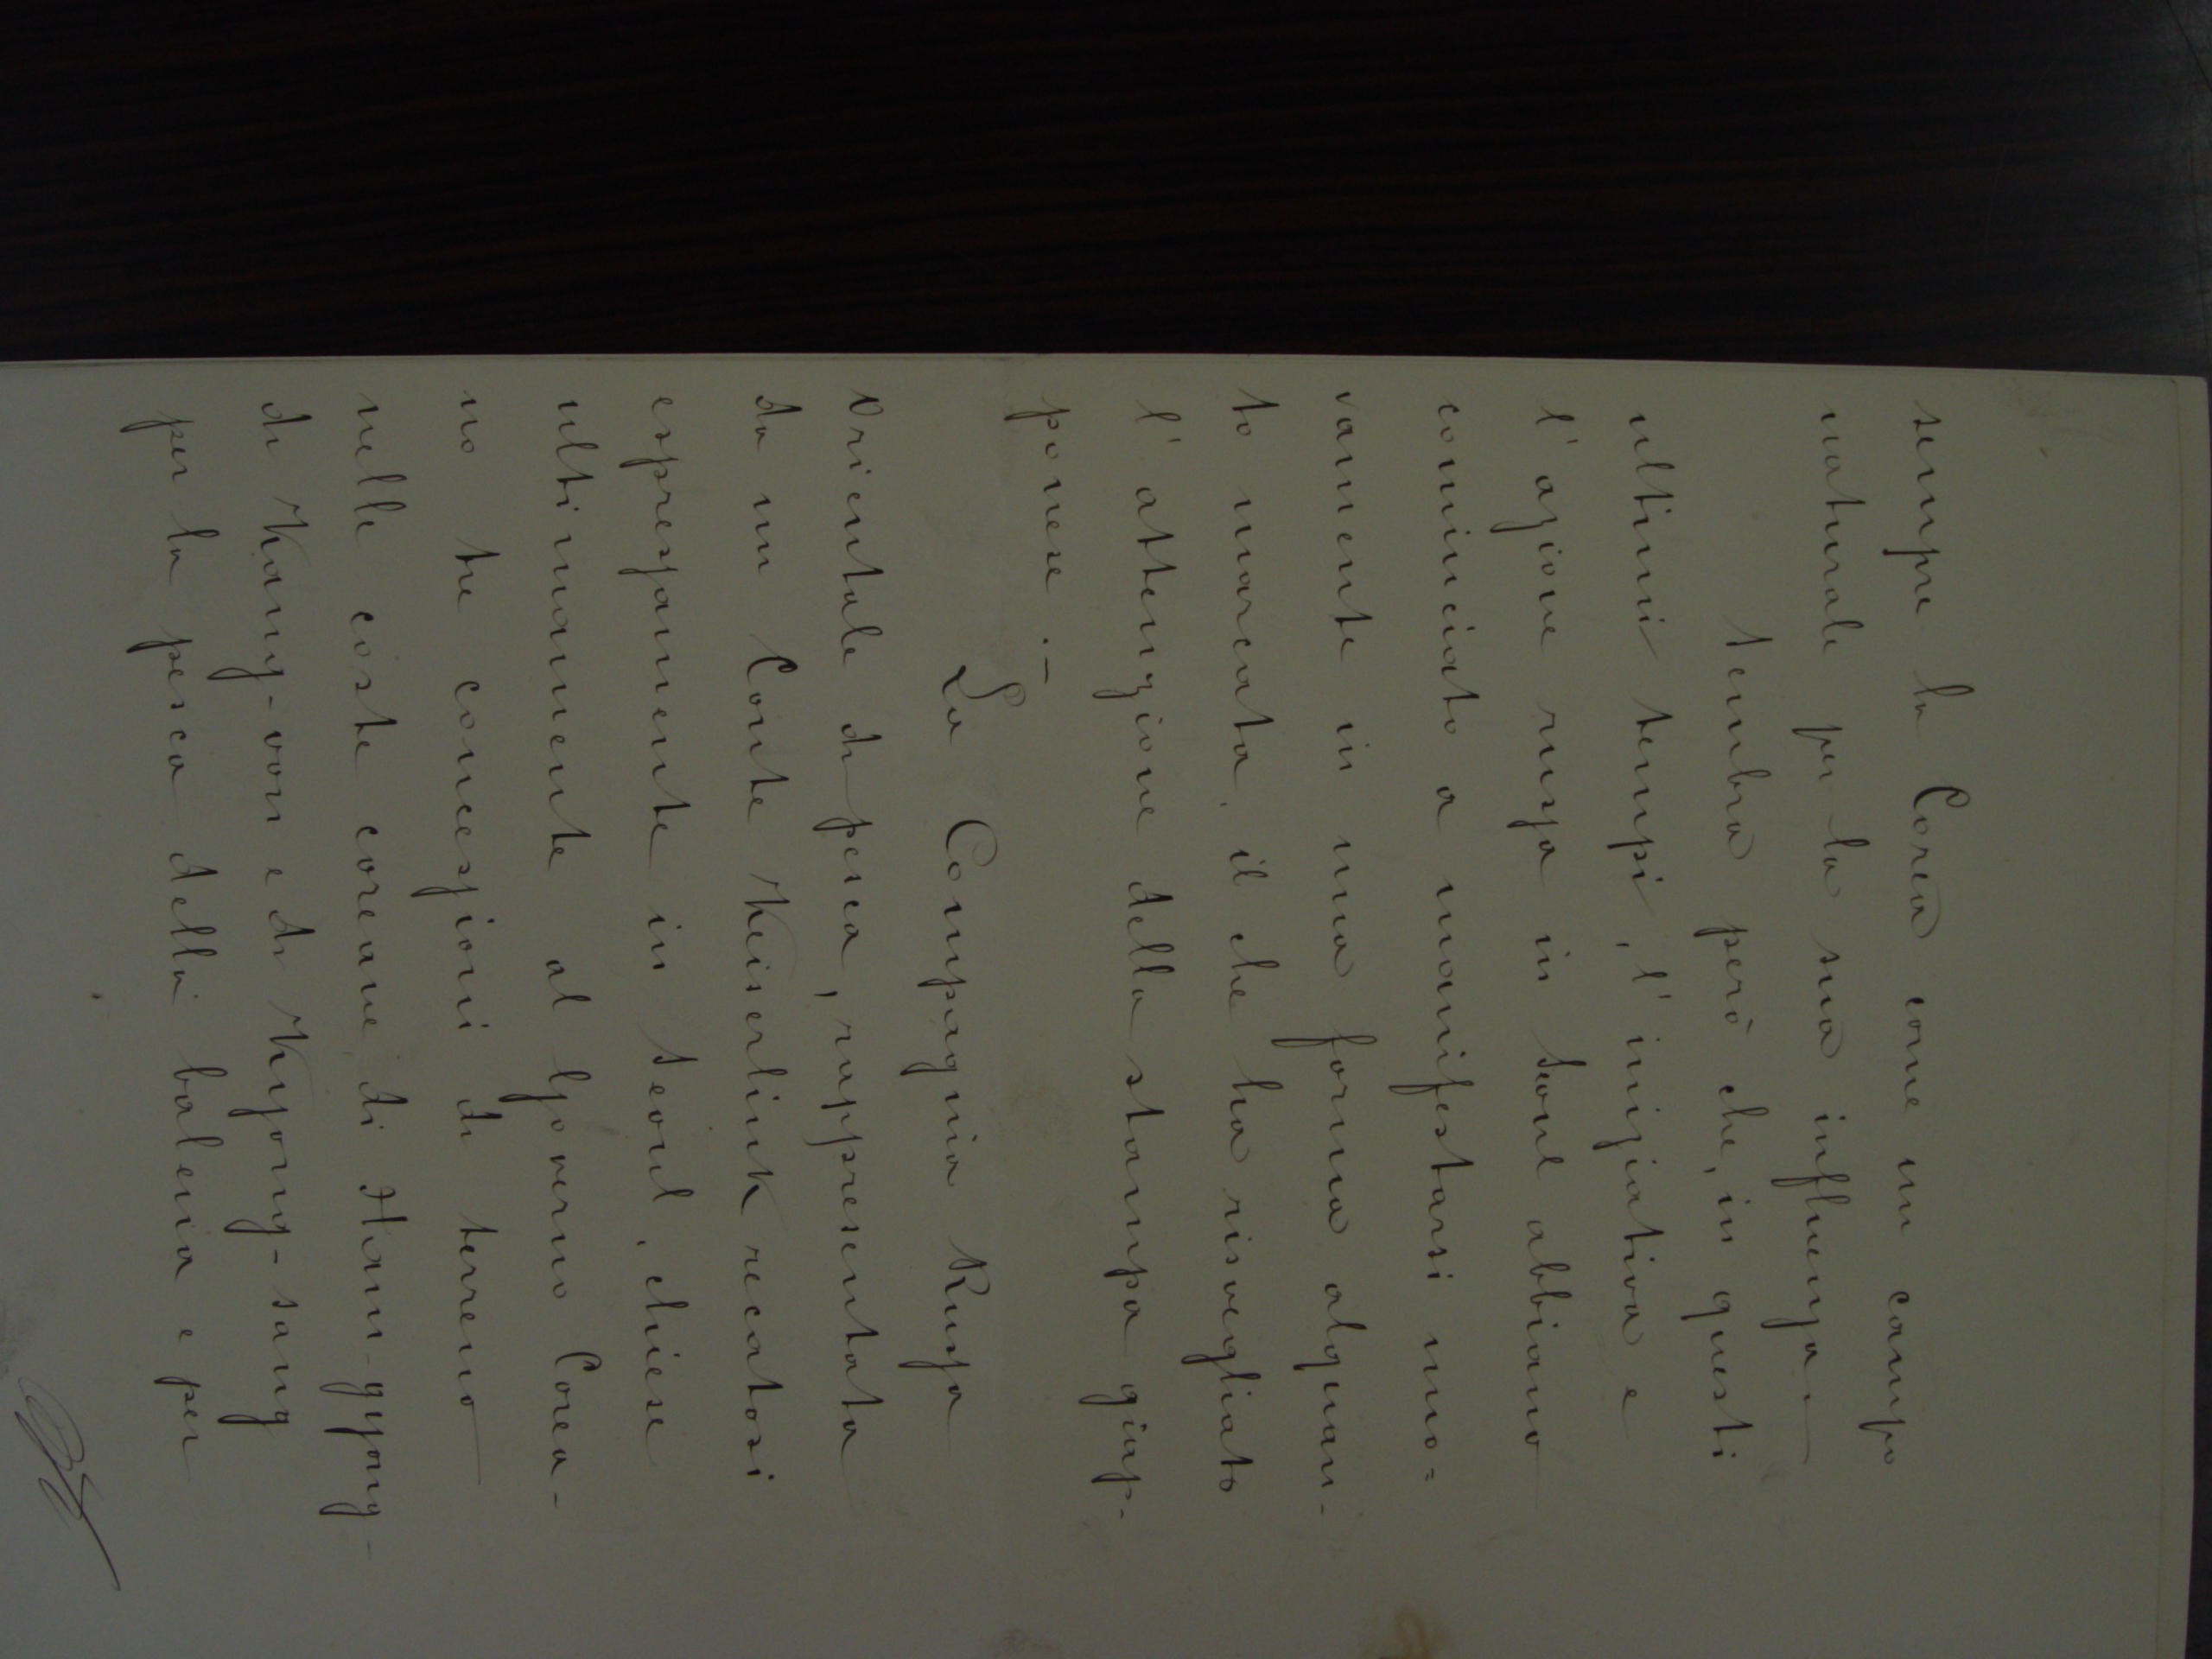 sempre la Corea come un campo
naturale per la sua influenza. —
Sembra però che, in questi
ultimi tempi, l'iniziativa e
l'azione russa in Seoul abbiano
cominciato a manifestarsi nuo=
vamente in una forma alquan-
to marcata, il che ha risvegliato
l'attenzione della stampa giap-
ponese. —
La Compagnia Russa
Orientale di pesca, rappresentata
da un Conte Keiserlink recatosi
espressamente in Seoul, chiese
ultimamente al Governo Corea-
no tre concessioni di terreno
nelle coste coreane di Ham-gyong-
di Kang-won e di Kyong-sang
per la pesca della balena e per